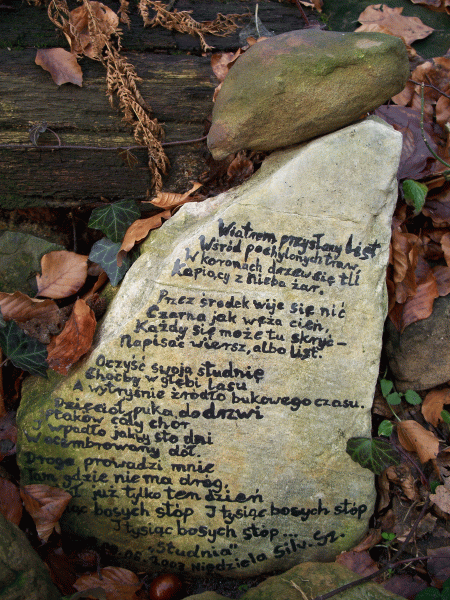 Wiatrem przysłany list
Wśród pochylonych traw,
W koronach drzew się tli
Kapiący z nieba żar.
Przez środek wije się nić
Czarna jak węża cień,
Każdy się może tu skryć –
Napisać wiersz, albo list.
Oczyść swoją studnię
Choćby w głębi lasu
A wytryśnie źródło bukowego czasu.
Dzięcioł puka do drzwi
ptaków cały chór
wpadło jakby sto dni
W ocembrowany dół.
Droga prowadzi mnie
Tam gdzie nie ma dróg,
I już tylko ten dzień
bosych stóp I tysiąc bosych stóp
I tysiąc bosych stóp...
"Studnia"
.06.2003 Niedziela Silv. Sz.